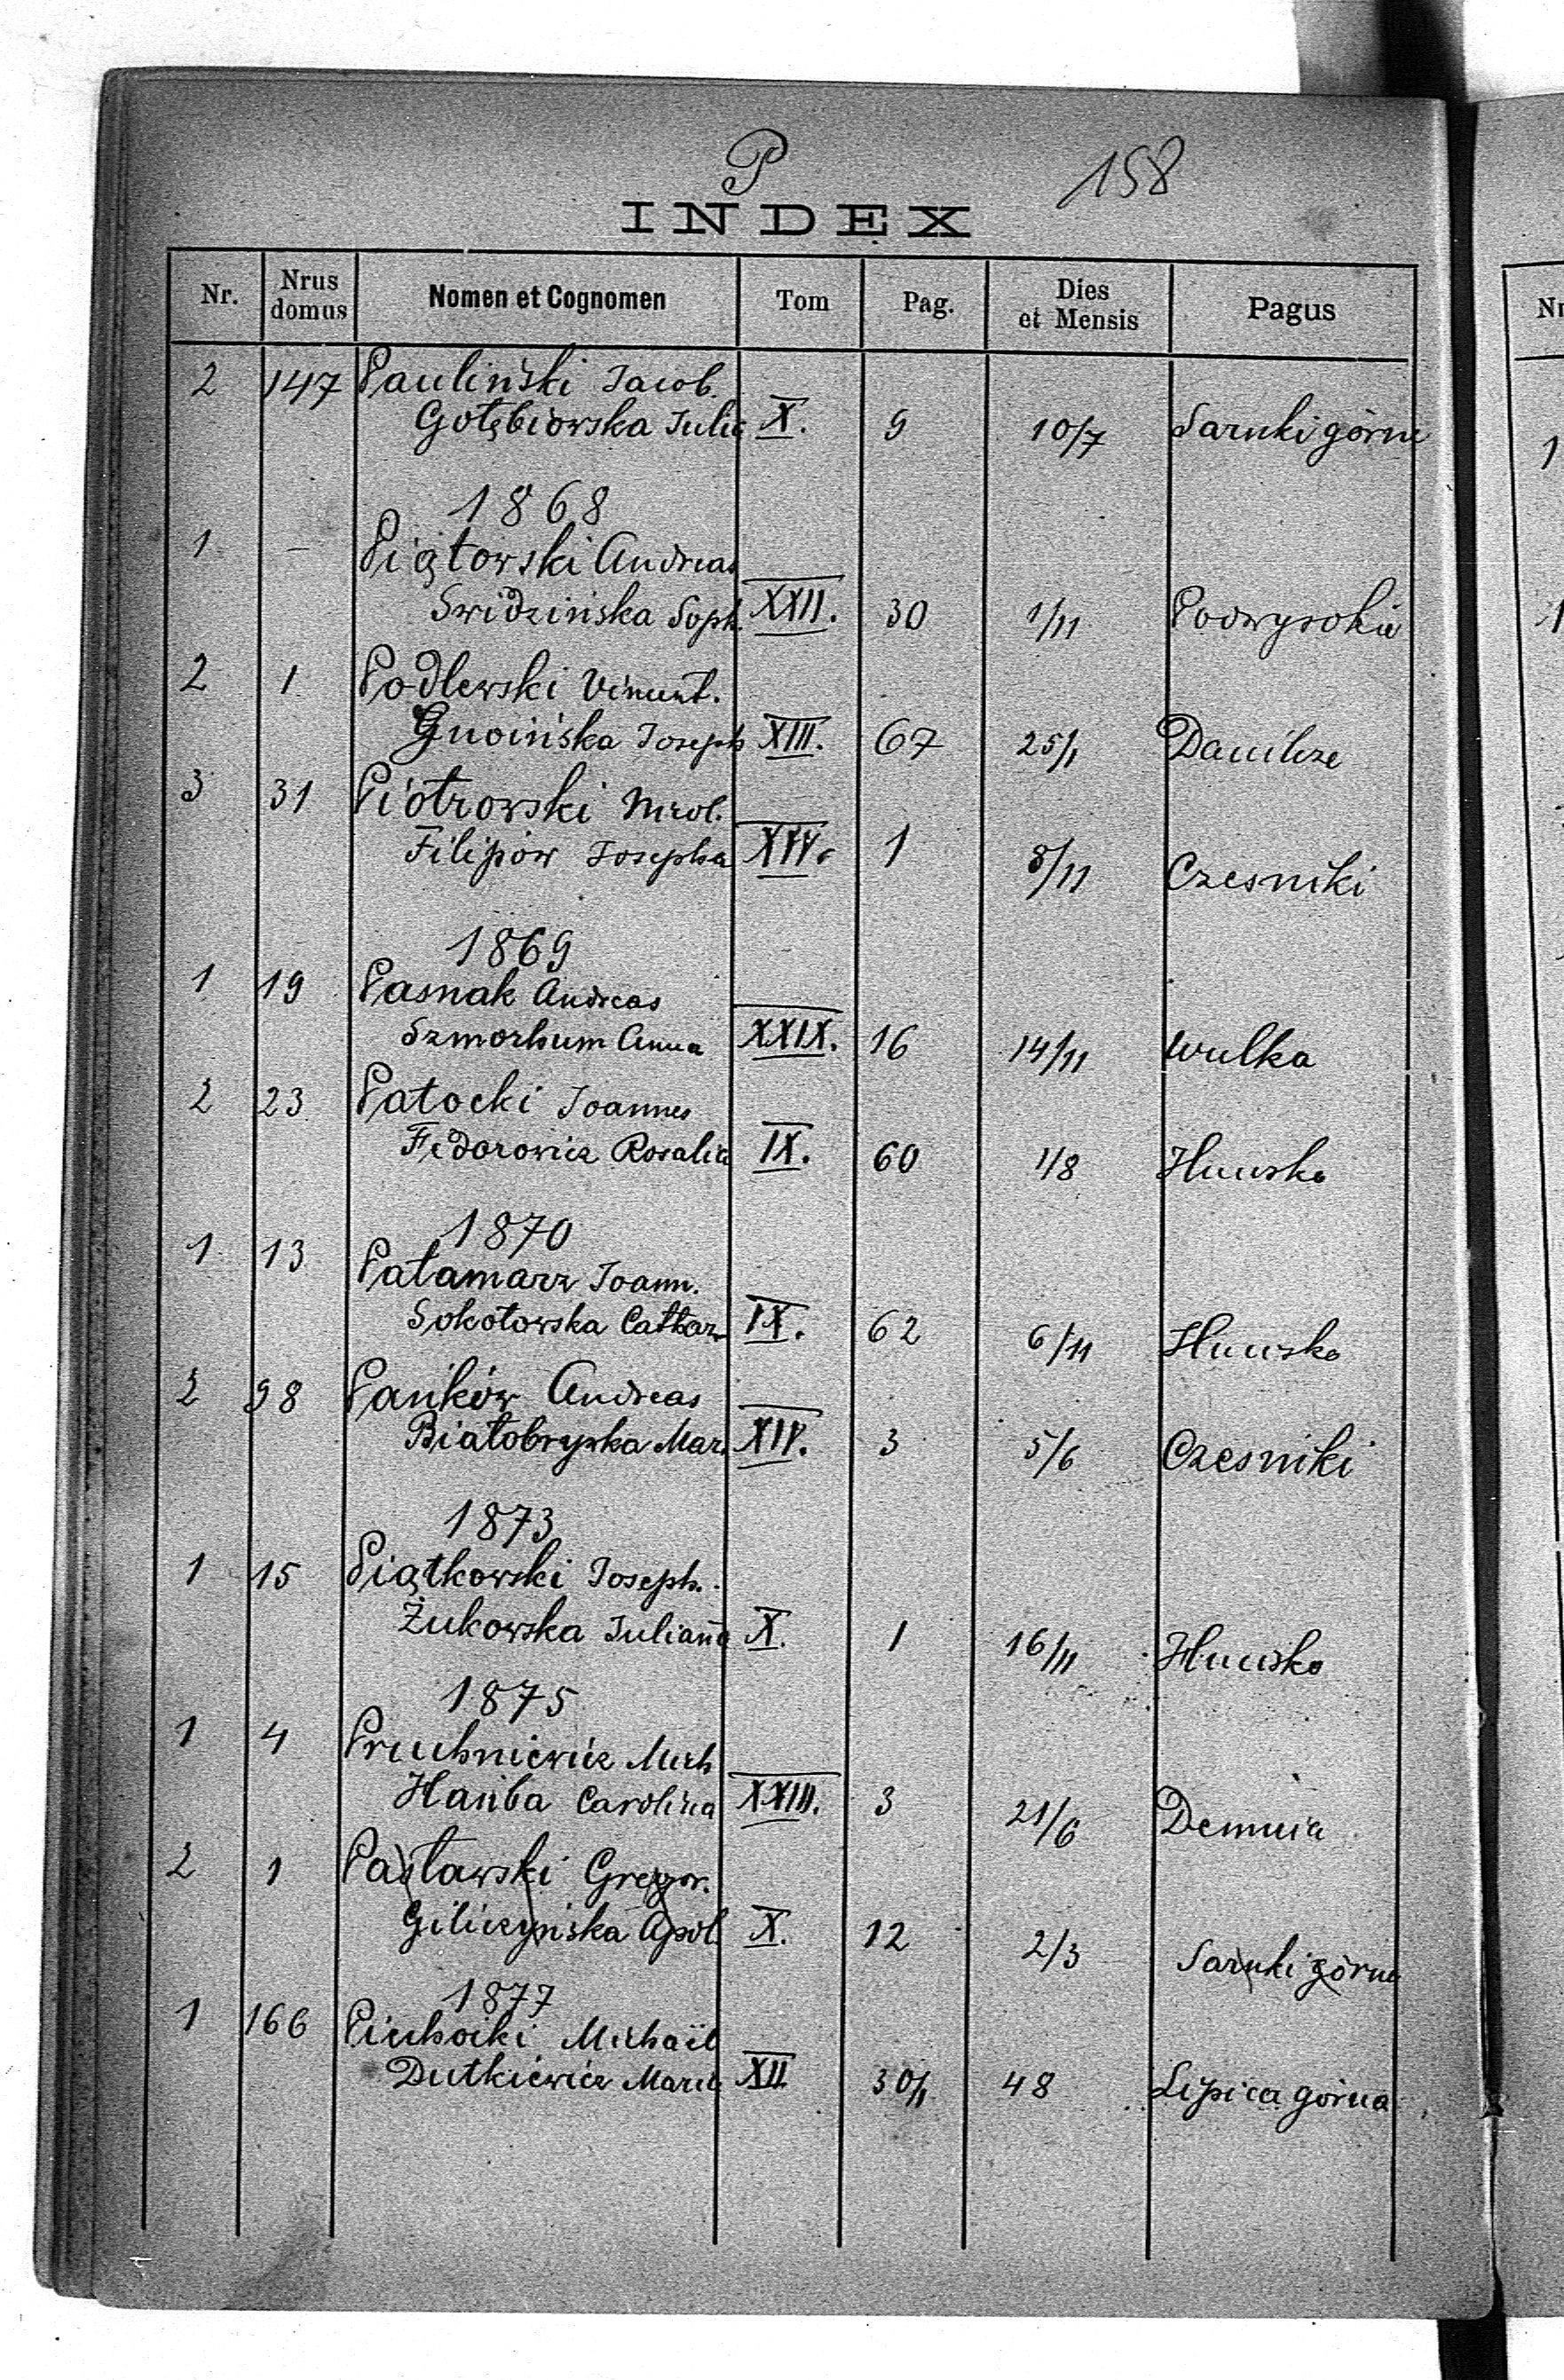 P 158
INDEX
Nr. Nrus domus Nomen et Cognomen Tom Pag. Dies et Mensis Pagus
2 147 Pauliński Jacob.
Gołębiowska Julia X. 9 10/7 Sarnki górne
1868
1 – Piątowski Andreas
Swidzińska Soph. XXII. 30 1/11 Podwysokie
2 1 Podlewski Vincent.
Gnoińska Joseph XIII. 67 25/1 Danilcze
3 31 Piotrowski
Filipów Josepha XIV. 1 8/11 Czesniki
1869
1 19 Pasnak Andreas
Anna XXIX. 16 14/11 Wulka
2 23 Patocki Joannes
Fedorowicz Rosalia IX. 60 1/8
1870
1 13 Patamarz Joann.
Sokołowska Cathar. IX. 62 6/11
2 98 Pańków Andreas
Białobryska Mar. XIV. 3 5/6 Czesniki
1873
1 15 Piątkowski Joseph.
Żukowska Juliana X. 1 16/11
1875
1 4 Pruchniewicz Mich
Hańba Carolina XXIII. 3 21/6 Demnia
2 1 Pastawski Gregor.
Giliczyńska Apol. X. 12 2/3 Sarnki górne
1877
1 166 Piechocki Michaël
Dutkiewicz Maria XII 30/1 48 Lipica górna
Nr